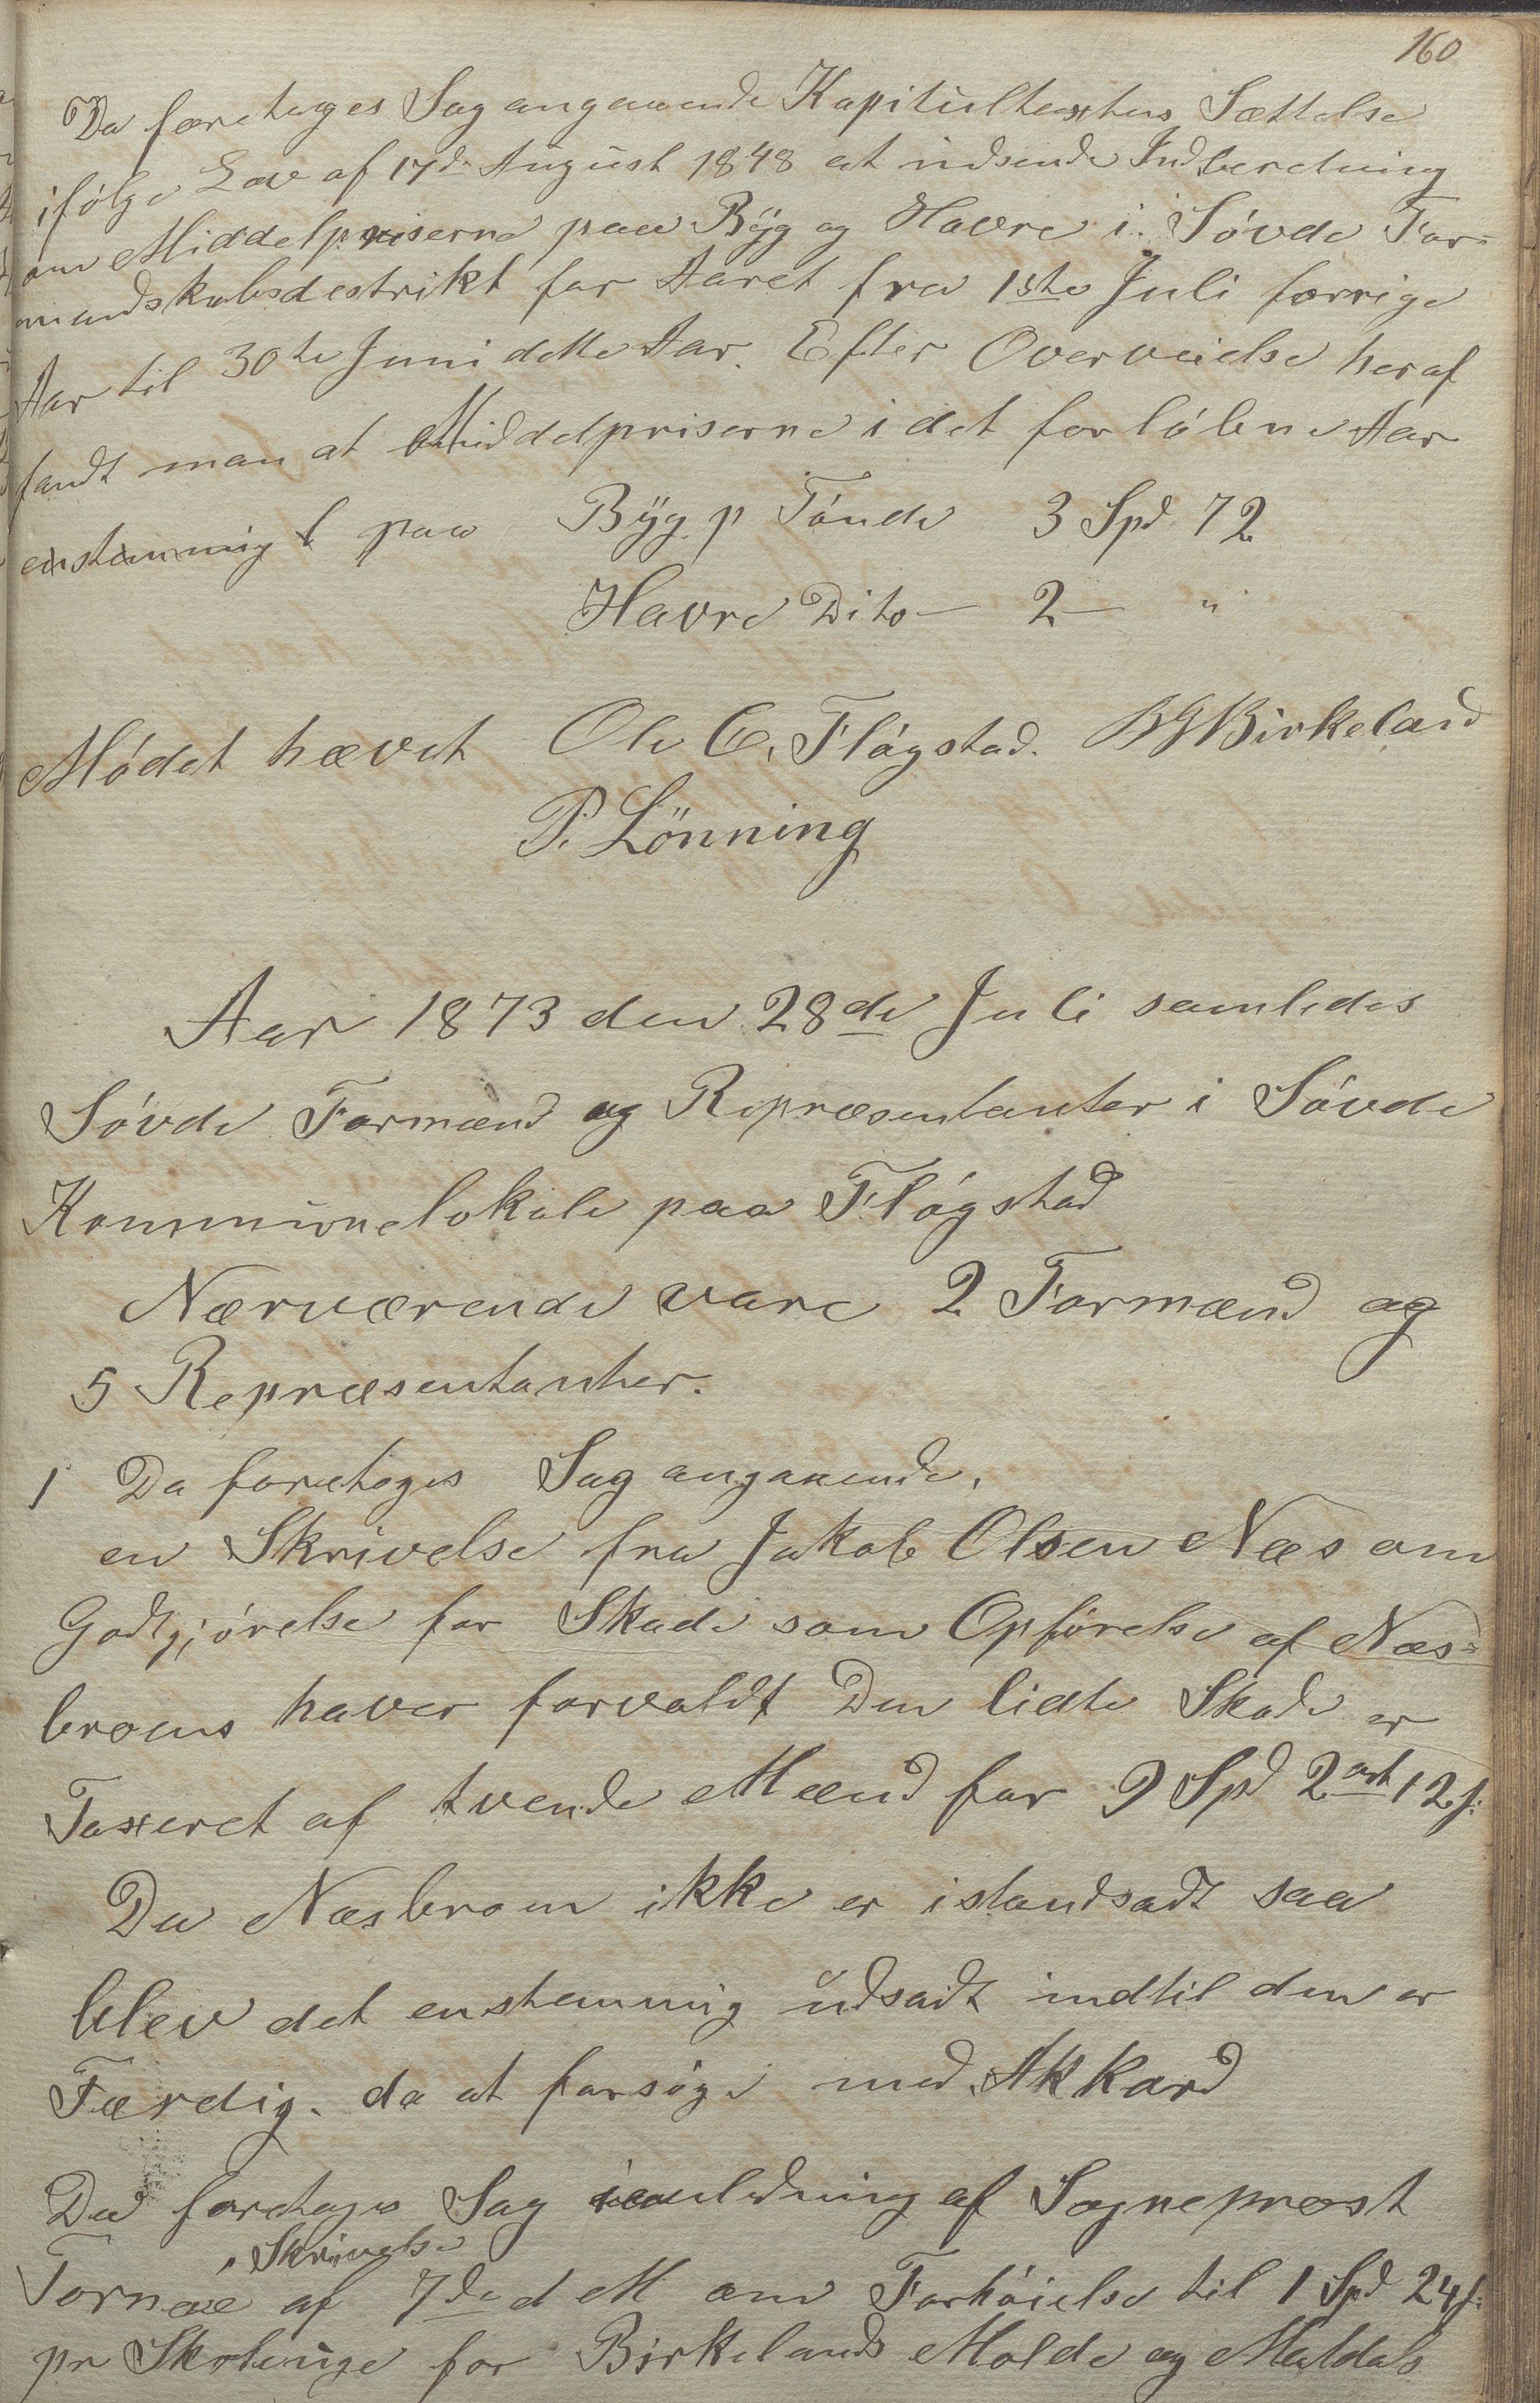 160
Da foretoges Sag angaaende Kapitultaxtens Sættelse
ifølge Lov af 17de August 1848 at udsende Indberetning
om Middelpriserne paa Byg og Havre i Søvde For-
mandskabsdestrikt for Aaret fra 1ste Juli forrige
Aar til 30te Juni dette Aar. Efter Overveielse heraf
fandt man at Middelpriserne i det forløbne Aar
enstemmig paa Byg p Tønde 3 Spd 72
Havre Dito — 2 — "
Mødet hævet Ole C. Fløgstad. BGBirkeland
P. Lönning
Aar 1873 den 28de Juli samledes
Søvde Formænd og Repræsentanter i Søvde
Kommunelokale paa Fløgstad
Nærværende vare 2 Formænd og
5 Repræsentanter.
1 Da foretoges Sag angaaende.
en Skrivelse fra Jakob Olsen Næs om
Godtgjørelse for Skade som Opførelse af Næs=
broens haver forvoldt Den lidte Skade er
Taxseret af tvende Mænd for 9 Spd 2 ort 12 s:
Da Næsbroen ikke er istandsadt saa
blev det enstemmig udsadt indtil den er
Færdig. da at forsøge med Akkord
Da foretoges Sag ianledning af Sogneprest
Skrivelse
Tornæe af 7de d M om Forhøielse til 1 Spd 24 s:
pr Skoleuge for Birkelands Molde og Maldals